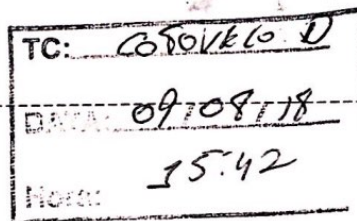 TC: COTOVELO D
DATA: 09/08/18
Hora: 15:42